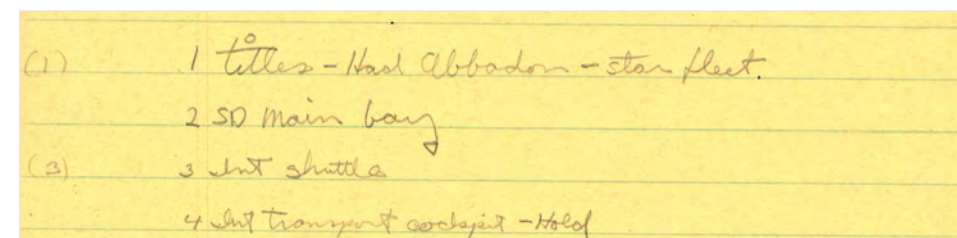 (1) 1 titles - Had Abbadon - star fleet.
2 SD main bay
(3) 3 Int shuttle
4 Int transport cockpit - Hold